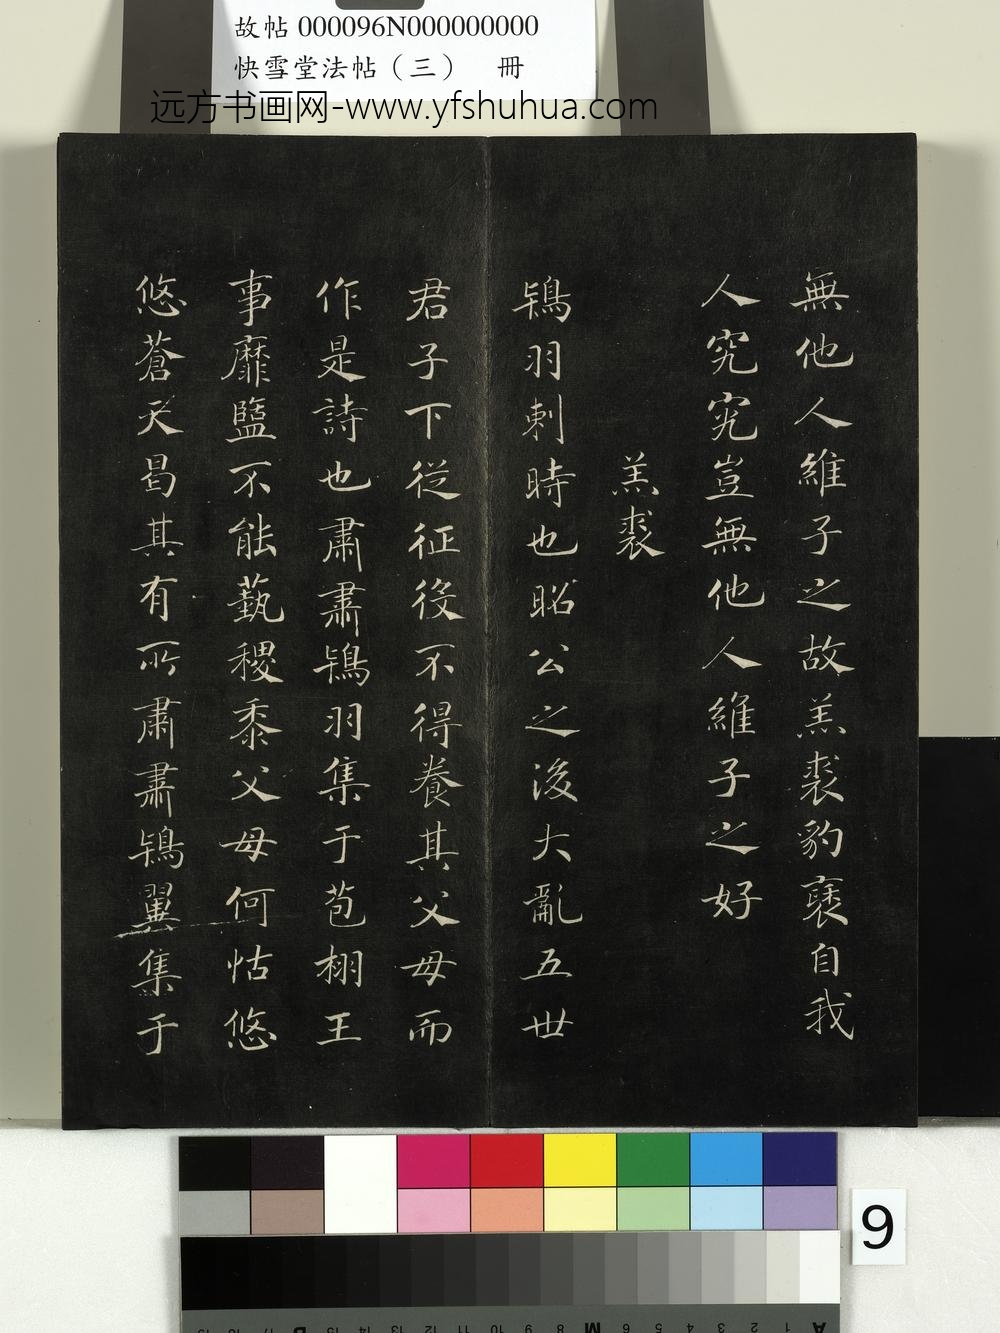 故帖 000096N000000000
快雪堂法帖（三） 冊
远方书画网-www.yfshuhua.com
無他人維子之故羔裘豹褎自我
人究究豈無他人維子之好
羔裘
鴇羽刺時也昭公之後大亂五世
君子下從征役不得養其父母而
作是詩也肅肅鴇羽集于苞栩王
事靡盬不能蓺稷黍父母何怙悠
悠蒼天曷其有所肅肅鴇翼集于
9